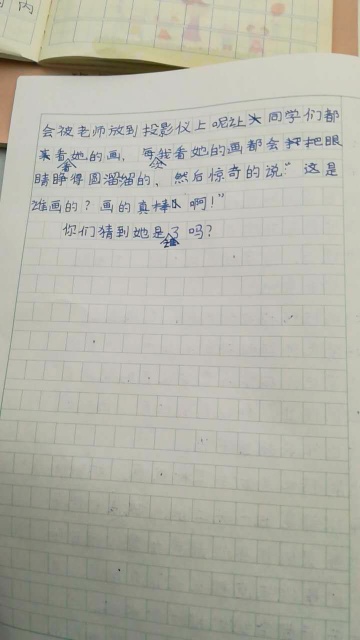 内
会被老师放到投影仪上呢让同学们都
来看她的画，每次我看她的画都会把眼
睛睁得圆溜溜的，然后惊奇的说“这是
谁画的？画的真棒啊！”
你们猜到她是谁了吗？